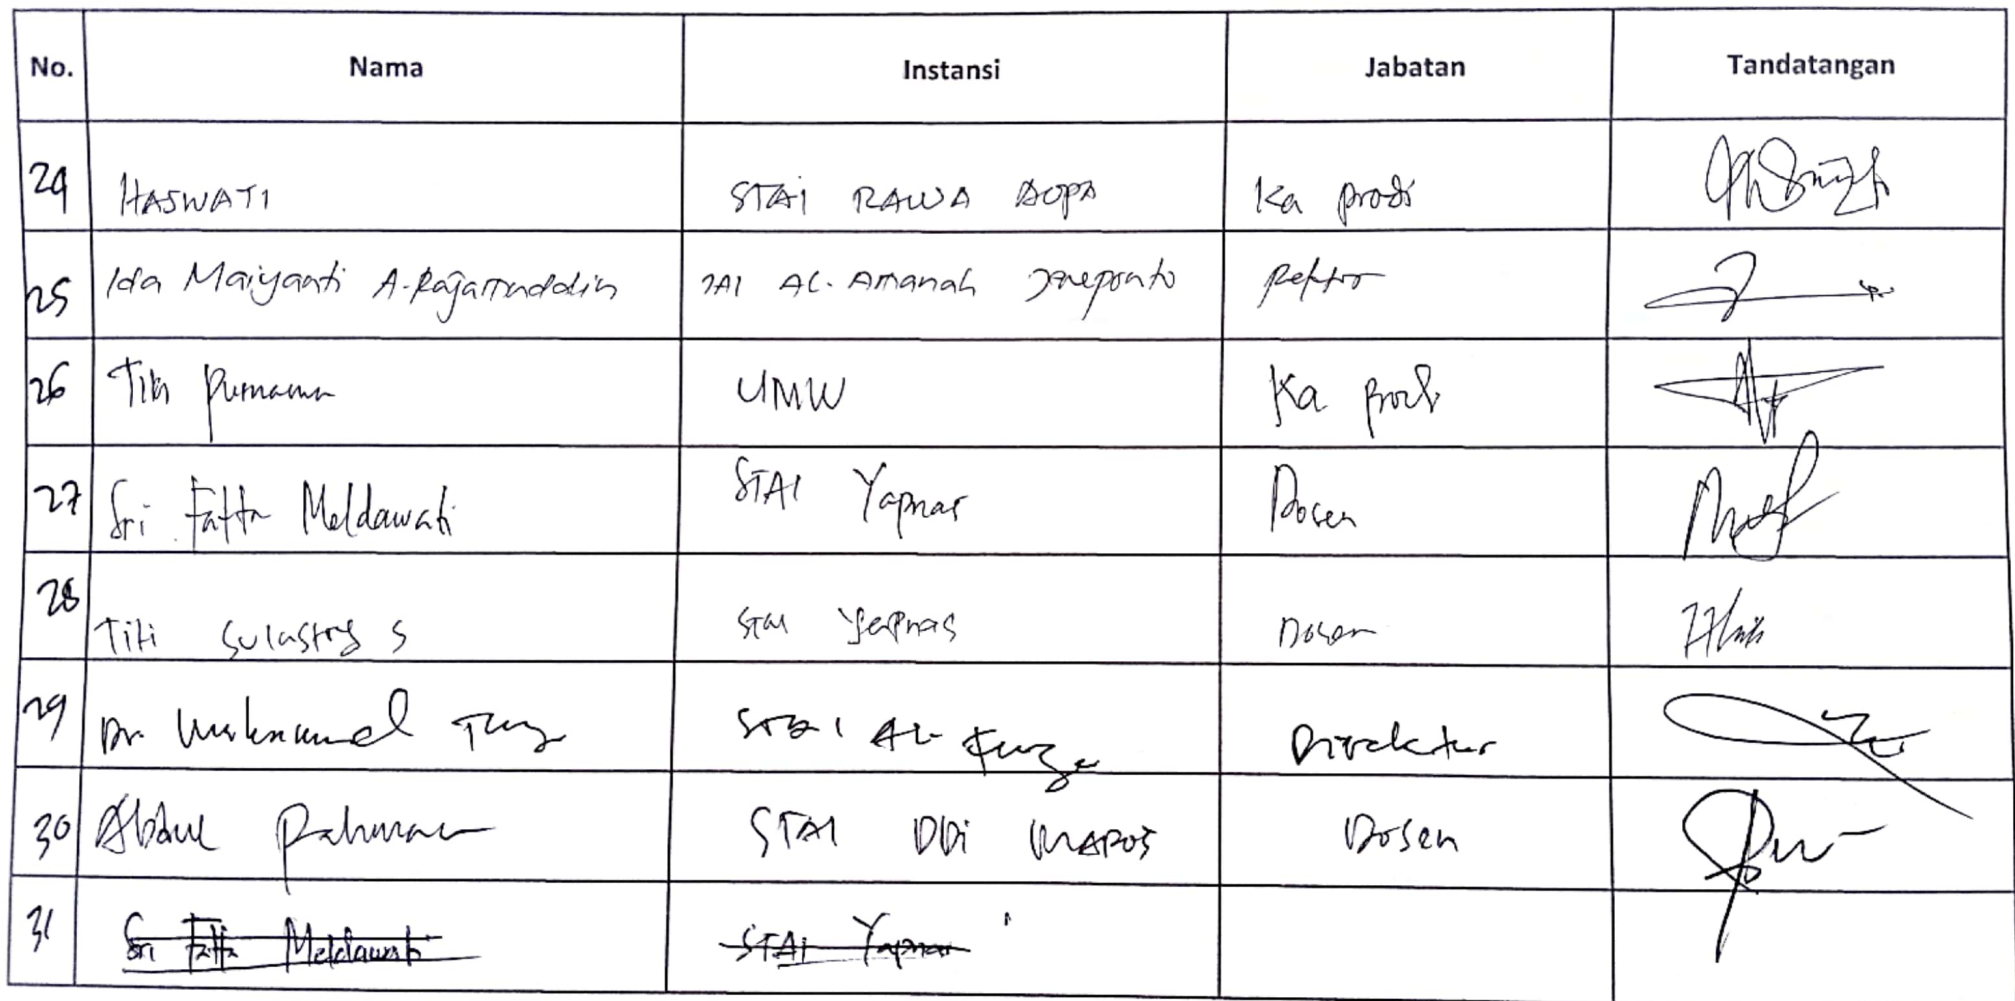 No. Nama Instansi Jabatan Tandatangan
24 HASWATI STAI RAWA AOPA Ka prodi
25 Ida Maiyanti A-Rajamuddin IAI AL-Amanah Jeneponto Rektor
26 Titi Purnama UMW Ka prodi
27 Sri Fatta Meldawati STAI Yapnas Dosen
28 Titi Sulastry S STAI Yapnas Dosen
29 Dr. Muhammad STAI AL- Direktur
30 Abdul Rahman STAI DDI MAROS Dosen
31 Sri Fatta Meldawati STAI Yapnas